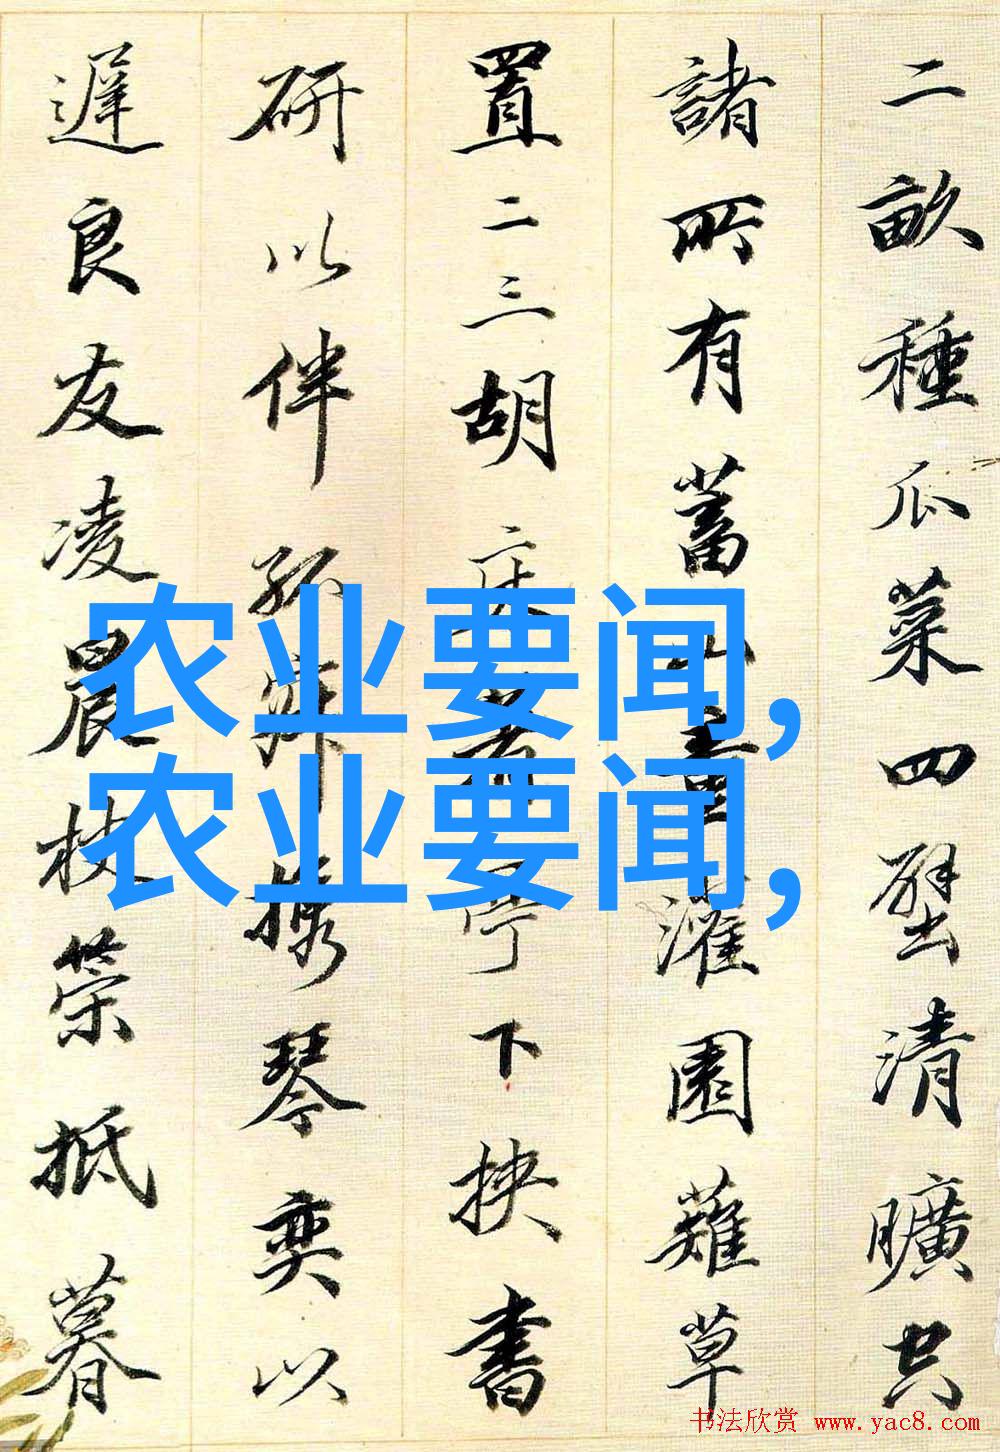 二畝種瓜菜四壁清曠空
諸所有蓄山童灌園薙草
置二三胡床着亭下挾書
研以伴孤寂携琴奕以
遲良友凌晨杖策抵暮
农业要闻,
农业要闻,
书法欣赏 www.yac8.com